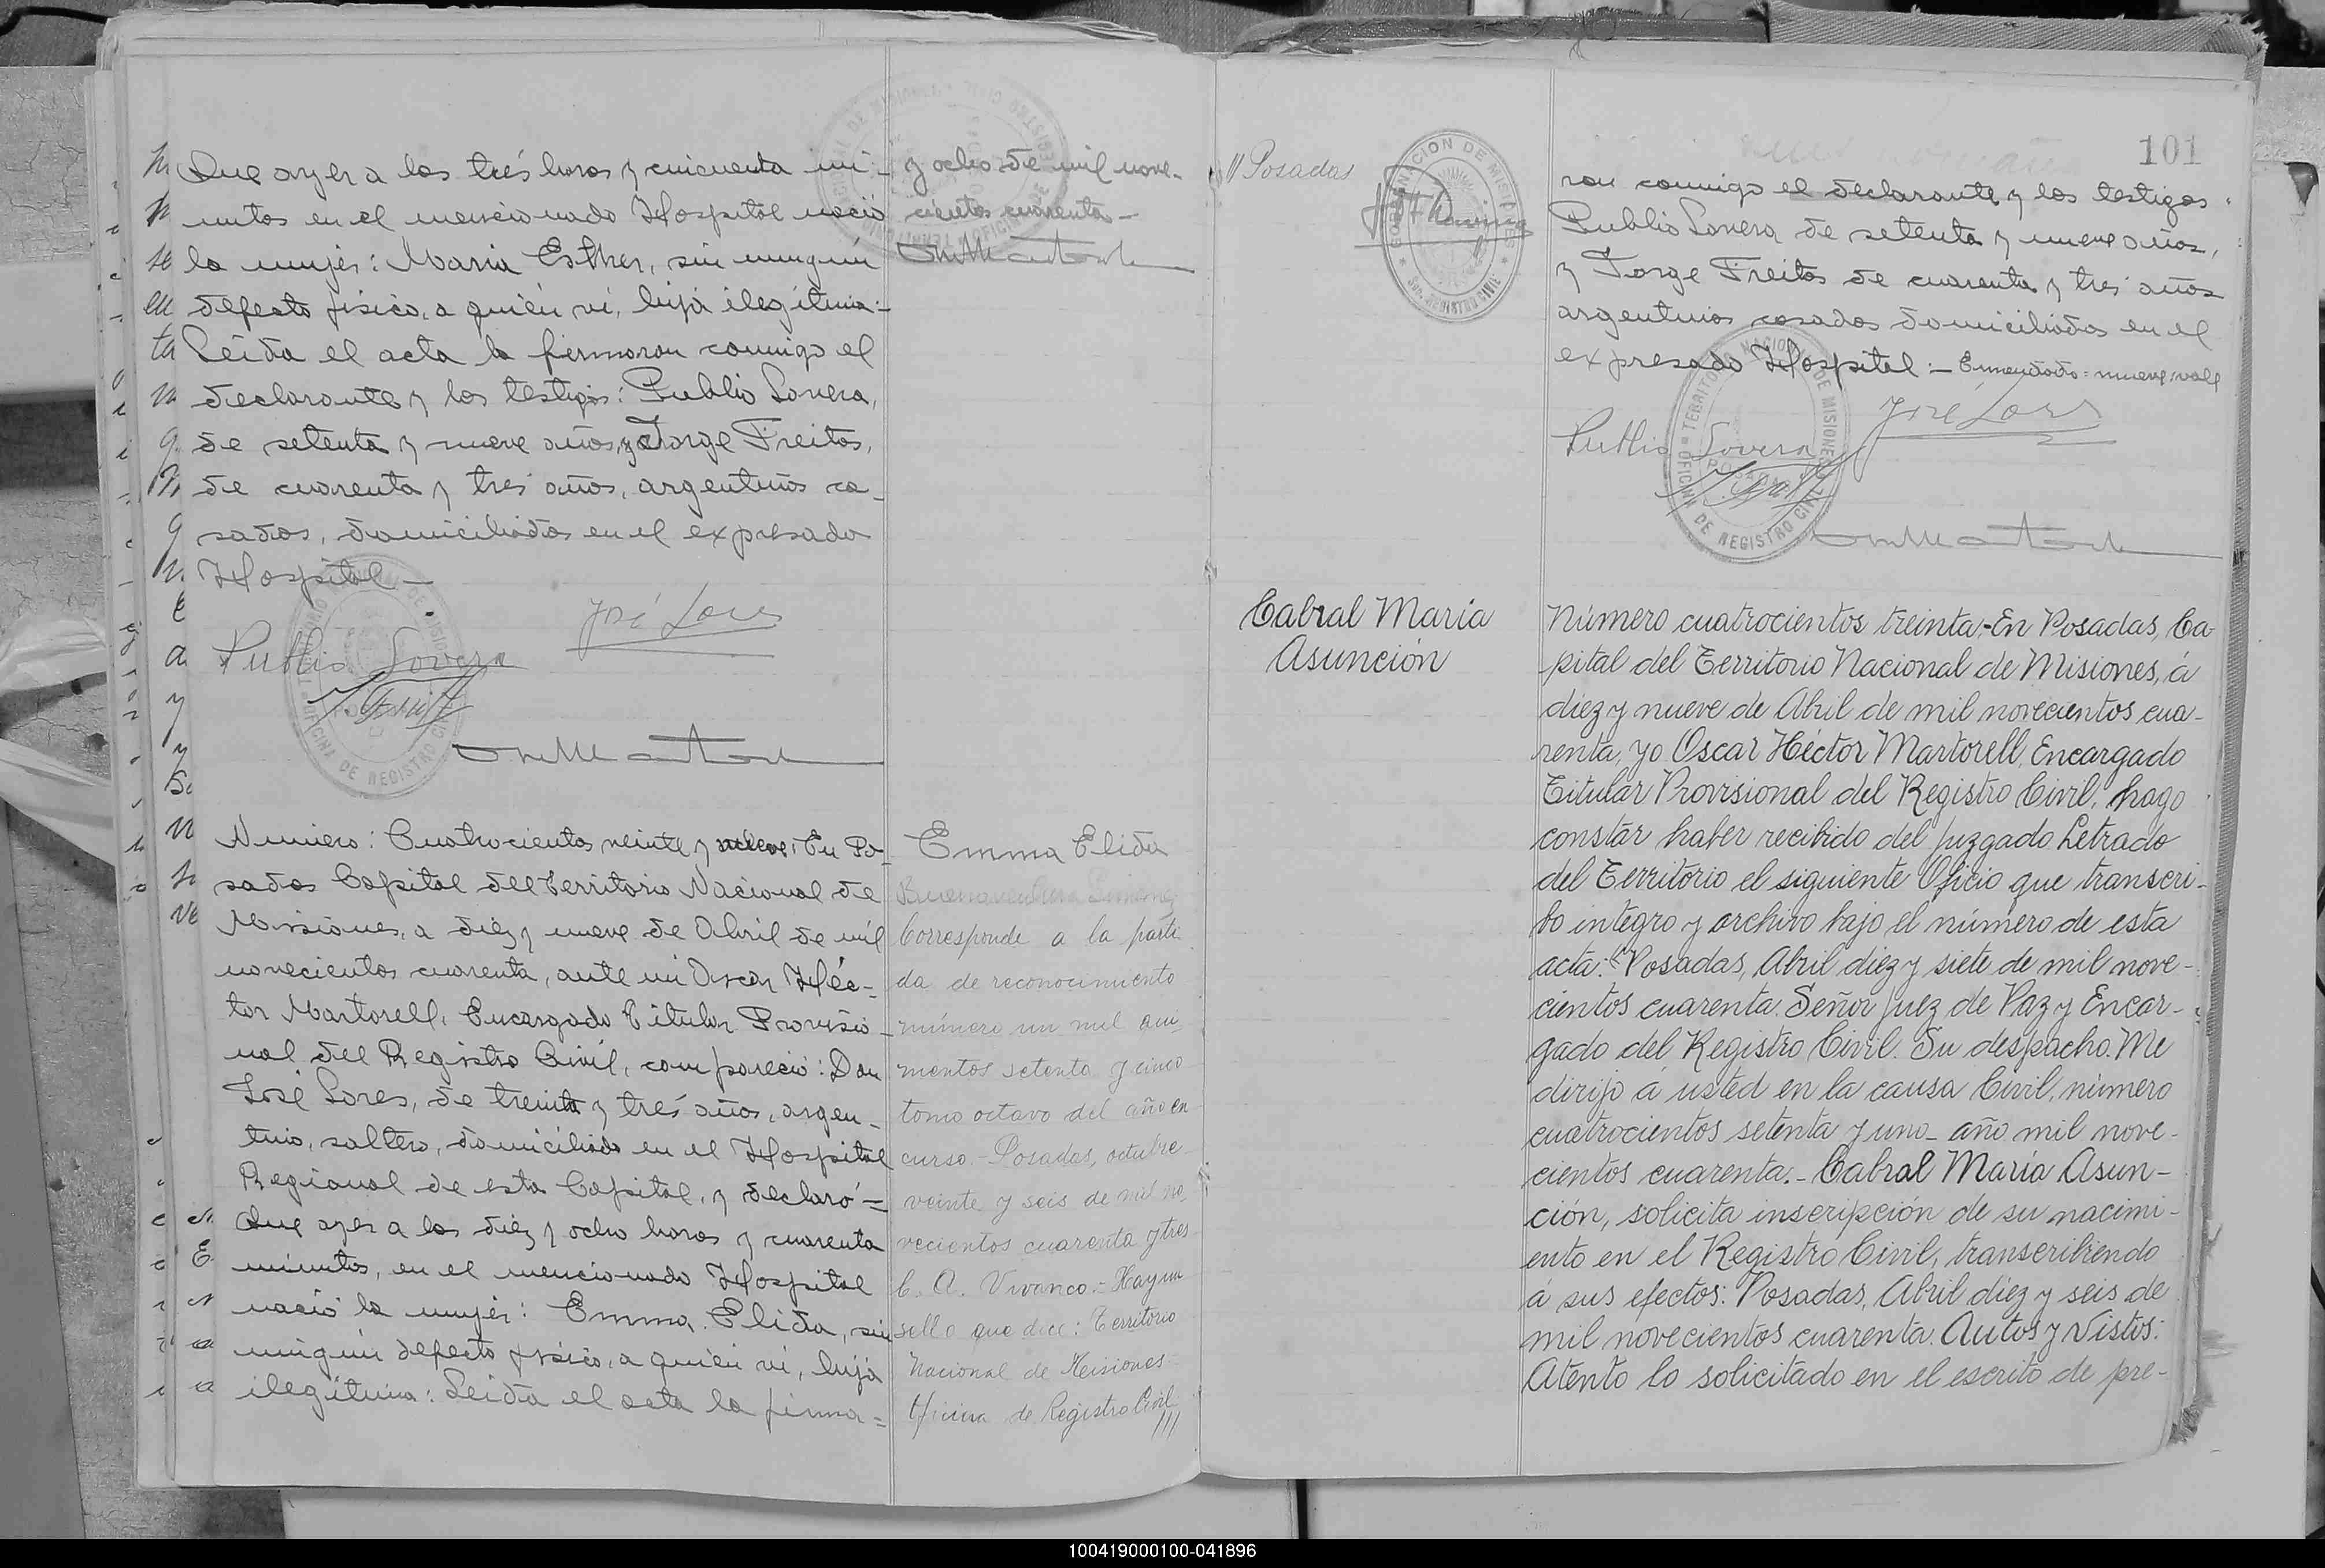 Que ayer a las trés horas y cincuenta mi-
nutos en el mencionado Hospital nació
la mujer: Maria Esther, sin ningún
defecto físico, a quién ví, hija ilegítima:-
Leída el acta la firmaron conmigo el
declarante y los testigos: Publio Lovera,
de setenta y nueve años, y Jorge Freitas,
de cuarenta y tres años, argentinos ca-
sados, domiciliados en el expresado
Hospital-
José Lores
Publio Lovera
Número: Cuatrocientos veinte y nueve: En Po-
sadas Capital del Territorio Nacional de
Misiones, a diéz y nueve de Abril de mil
novecientos cuarenta, ante mi Oscar Héc-
tor Martorell, Encargado Titular Provisio-
nal del Registro Civil, compareció: Don
José Lores, de treinta y trés años, argen-
tino, soltero, domiciliado en el Hospital
Regional de esta Capital, y declaró:=
Que ayer a las diéz y ocho horas y cuarenta
minutos, en el mencionado Hospital
nació la mujer: Emma Elida, sin
ningún defecto físico, a quién ví, hija
ilegítima: Leída el acta la firma=
y ocho de mil nove-
cientos cuarenta-
Emma Elida
Buenaventura Gimenez
Corresponde a la parti
da de reconocimiento
número un mil qui
nientos setenta y cinco
tomo octavo del año en
curso.- Posadas, octubre
veinte y seis de mil no
vecientos cuarenta y tres
C. A. Vivanco.- Hay un
sello que dice: Territorio
Nacional de Misiones
Oficina de Registro Civil
///
// Posadas
GOBERNACION DE MISIONES
SEC. REGISTRO CIVIL
101
ron conmigo el declarante y los testigos
Publio Lovera de setenta y nueve años,
y Jorge Freitas de cuarenta y tres años
argentinos casados domiciliados en el
expresado Hospital:- Enmendado: nueve: vale
José Lores
Publio Lovera
TERRITORIO NACIONAL DE MISIONES
POSADAS
OFICINA DE REGISTRO CIVIL
Cabral Maria
Asunción
Número cuatrocientos treinta:-En Posadas, Ca-
pital del Territorio Nacional de Misiones, á
diez y nueve de Abril de mil novecientos cua-
renta, yo Oscar Héctor Martorell, Encargado
Titular Provisional del Registro Civil, hago
constar haber recibido del Juzgado Letrado
del Territorio el siguiente Oficio que transcri-
bo integro y archivo bajo el número de esta
acta: "Posadas, Abril diez y siete de mil nove-
cientos cuarenta. Señor Juez de Paz y Encar-
gado del Registro Civil. Su despacho. Me
dirijo á usted en la causa Civil, número
cuatrocientos setenta y uno_ año mil nove-
cientos cuarenta.- Cabral María Asun-
ción, solicita inscripción de su nacimi-
ento en el Registro Civil, transcribiendo
á sus efectos: Posadas, Abril diez y seis de
mil novecientos cuarenta. Autos y Vistos:
Atento lo solicitado en el escrito de pre-
100419000100-041896